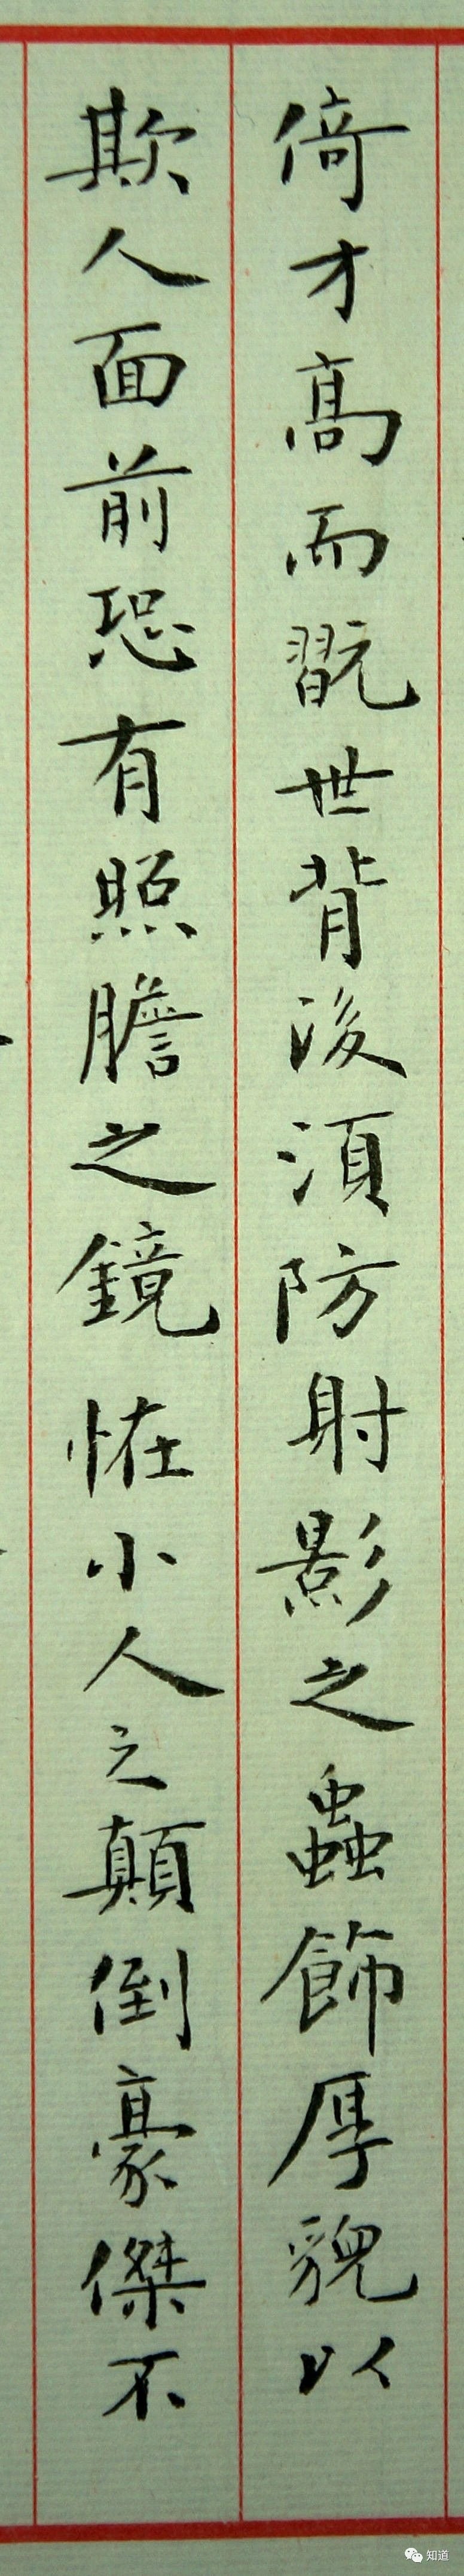 倚才高而翫世背後須防射影之蟲飾厚貌以
欺人面前恐有照膽之鏡恠小人之顛倒豪傑不
知道